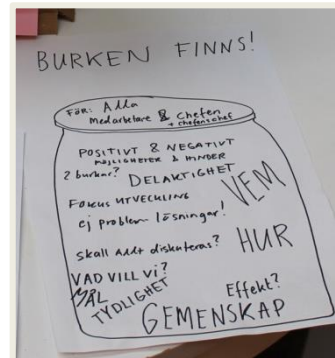 BURKEN FINNS!
FÖR: Alla
medarbetare & Chefen
+ chefens chef
POSITIVT & NEGATIVT
MÖJLIGHETER & HINDER
2 burkar?
DELAKTIGHET
VEM
FOKUS UTVECKLING
ej problem lösningar!
HUR
skall Allt diskuteras?
VAD VILL Vi?
MÅL
TYDLIGHET
Effekt?
GEMENSKAP